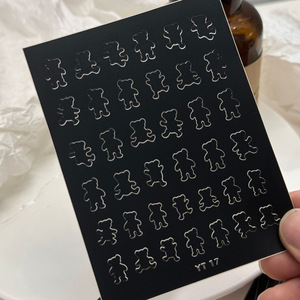 YT 17